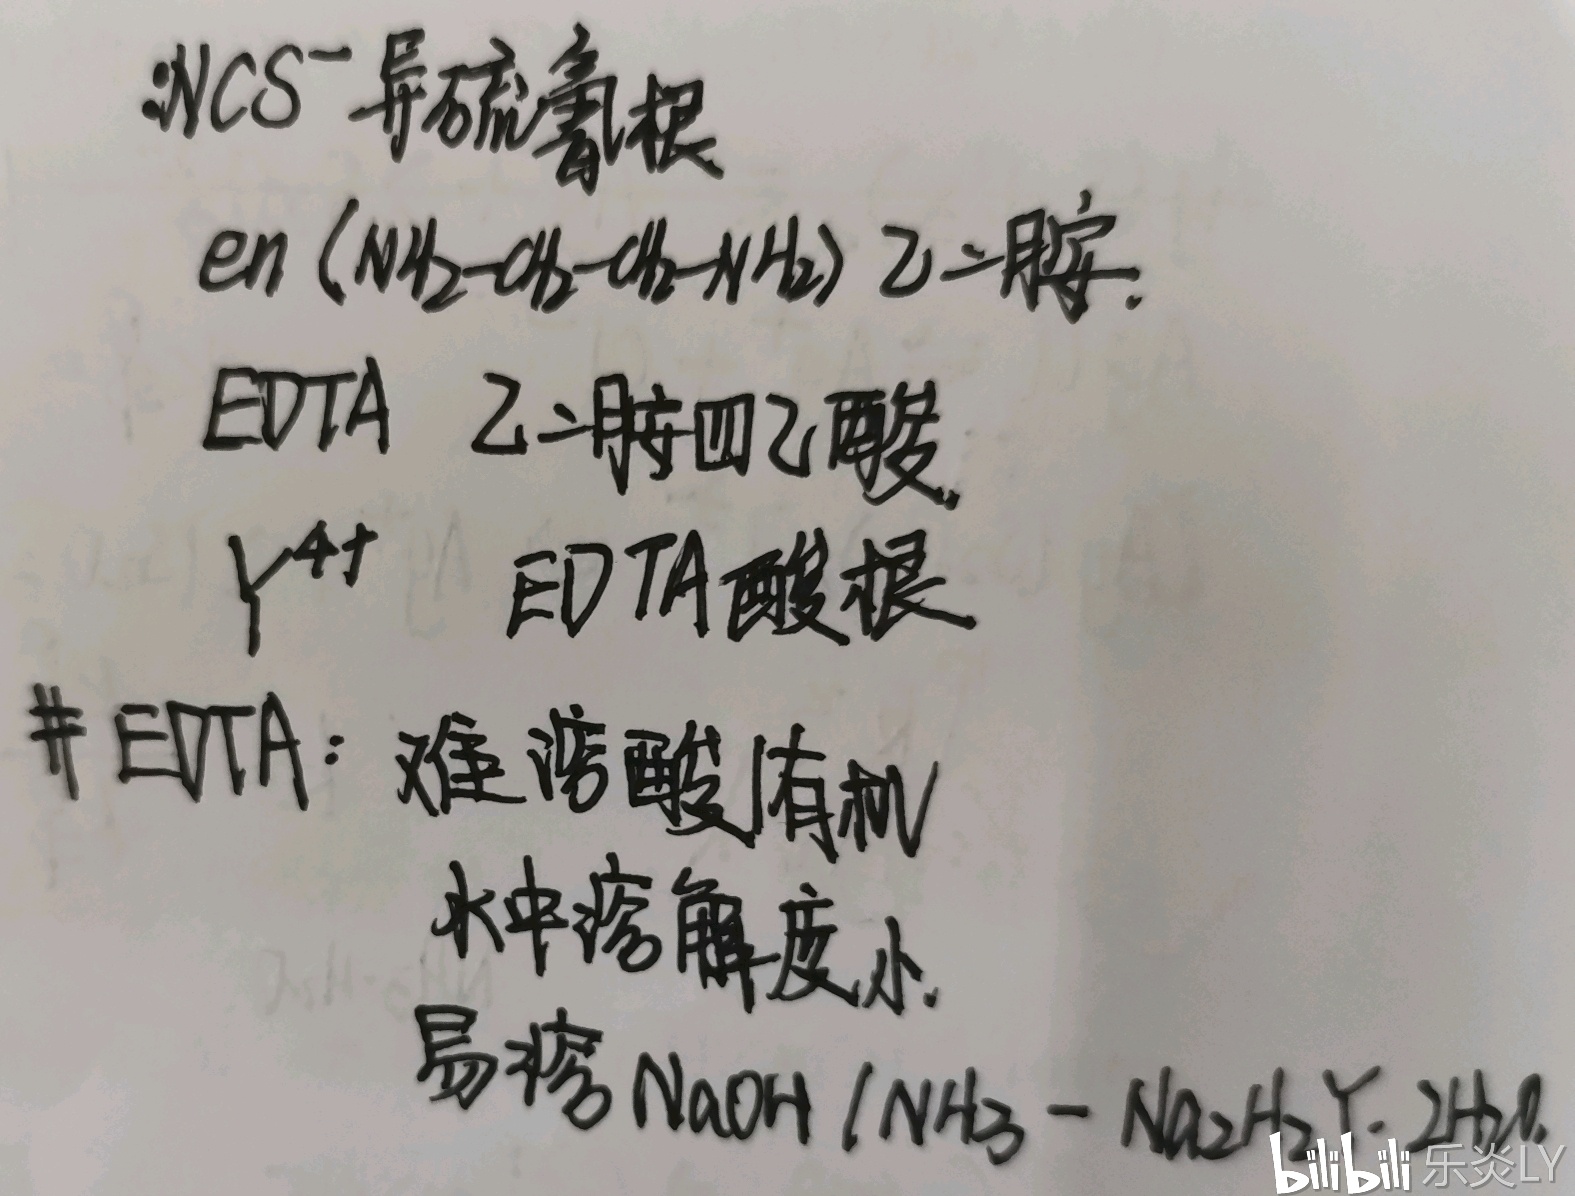 :NCS⁻ 异硫氰根
en (NH₂-CH₂-CH₂-NH₂) 乙二胺.
EDTA 乙二胺四乙酸.
Y⁴⁺ EDTA酸根
# EDTA: 难溶酸/有机
水中溶解度小.
易溶 NaOH / NH₃ - Na₂H₂Y·2H₂O.
bilibili 乐炎LY